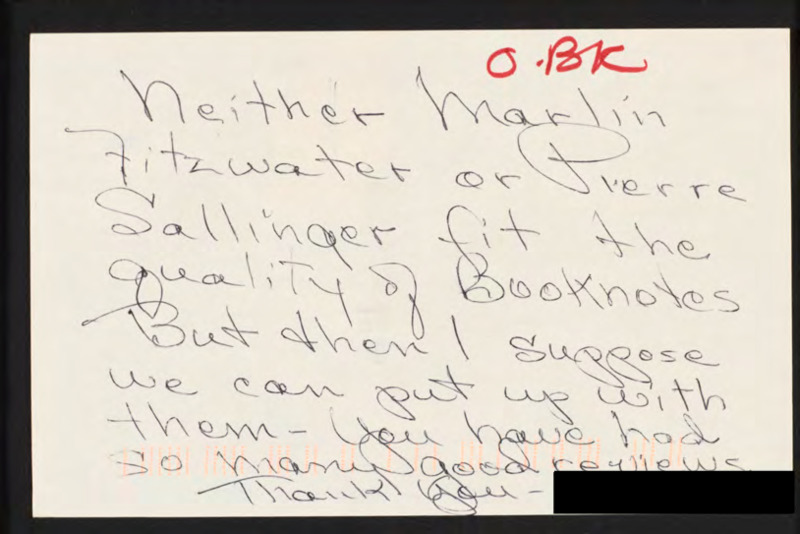 O.BK
Neither Marlin
Fitzwater or Pierre
Sallinger fit the
quality of Booknotes
But then I suppose
we can put up with
them - you have had
so many good reviews
Thank You -